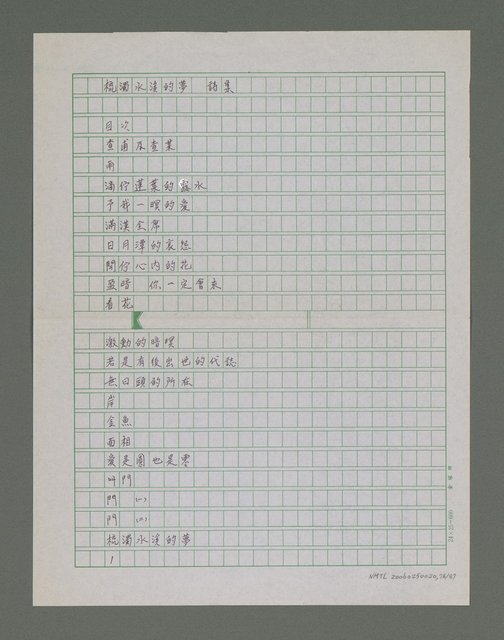 梳濁水溪的夢　詩集
目次
查甫及查某
雨
滴佇蓮葉的露水
予我一暝的愛
滿漢全席
日月潭的哀怨
開佇心內的花
盈暗　你一定會來
看花
激動的暗暝
若是有後出世的代誌
無日頭的所在
岸
金魚
面相
愛是圓也是零
叫門
門　(一)
門　(二)
梳濁水溪的夢
1
24×25=600
NMTL 20060250020,78/87